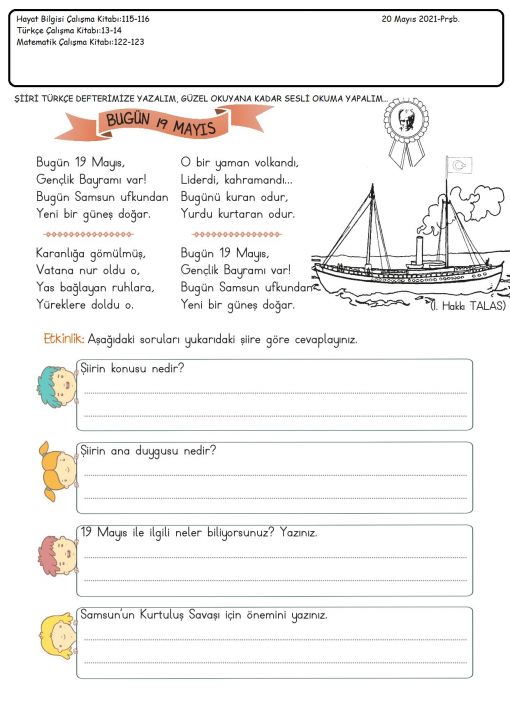 Hayat Bilgisi Çalışma Kitabı:115-116
20 Mayıs 2021-Prşb.
Türkçe Çalışma Kitabı:13-14
Matematik Çalışma Kitabı:122-123
ŞİİRİ TÜRKÇE DEFTERİMİZE YAZALIM, GÜZEL OKUYANA KADAR SESLİ OKUMA YAPALIM...
BUGÜN 19 MAYIS
Bugün 19 Mayıs,
Gençlik Bayramı var!
Bugün Samsun ufkundan
Yeni bir güneş doğar.
Karanlığa gömülmüş,
Vatana nur oldu o,
Yas bağlayan ruhlara,
Yüreklere doldu o.
O bir yaman volkandı,
Liderdi, kahramandı...
Bugünü kuran odur,
Yurdu kurtaran odur.
Bugün 19 Mayıs,
Gençlik Bayramı var!
Bugün Samsun ufkundan
Yeni bir güneş doğar.
(İ. Hakkı TALAS)
Etkinlik: Aşağıdaki soruları yukarıdaki şiire göre cevaplayınız.
Şiirin konusu nedir?
Şiirin ana duygusu nedir?
19 Mayıs ile ilgili neler biliyorsunuz? Yazınız.
Samsun'un Kurtuluş Savaşı için önemini yazınız.